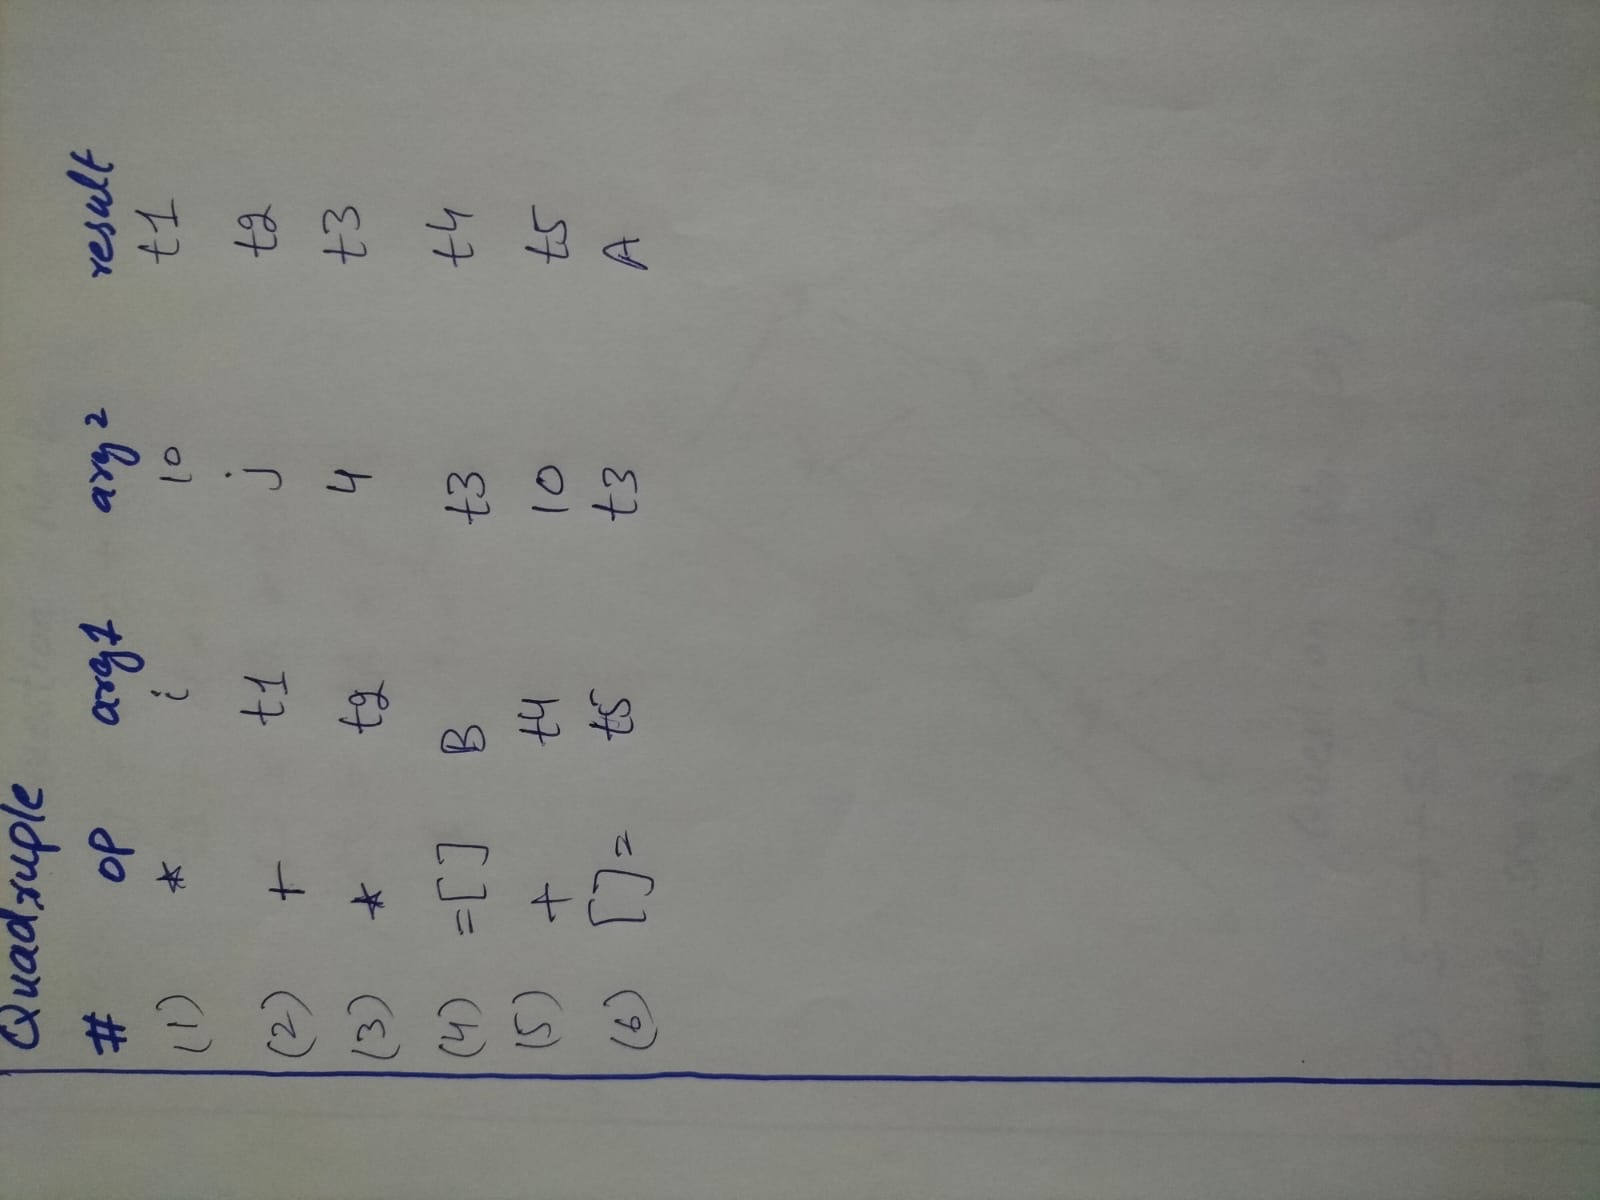 Quadruple
# op arg1 arg2 result
(1) * i 10 t1
(2) + t1 j t2
(3) * t2 4 t3
(4) =[] B t3 t4
(5) + t4 10 t5
(6) []= t5 t3 A